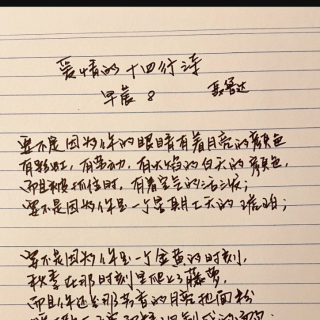 爱情的十四行诗
早晨 8
聂鲁达
要不是因为你的眼睛有着月亮的颜色
有黏土,有劳动,有火焰的白天的颜色,
而且被抓住时,有着空气的活泼;
要不是因为你是一个星期七天的琥珀;
要不是因为你是一个金黄的时刻,
秋季在那时刻里爬上了藤萝,
而且你还是那芳香的月亮把面粉